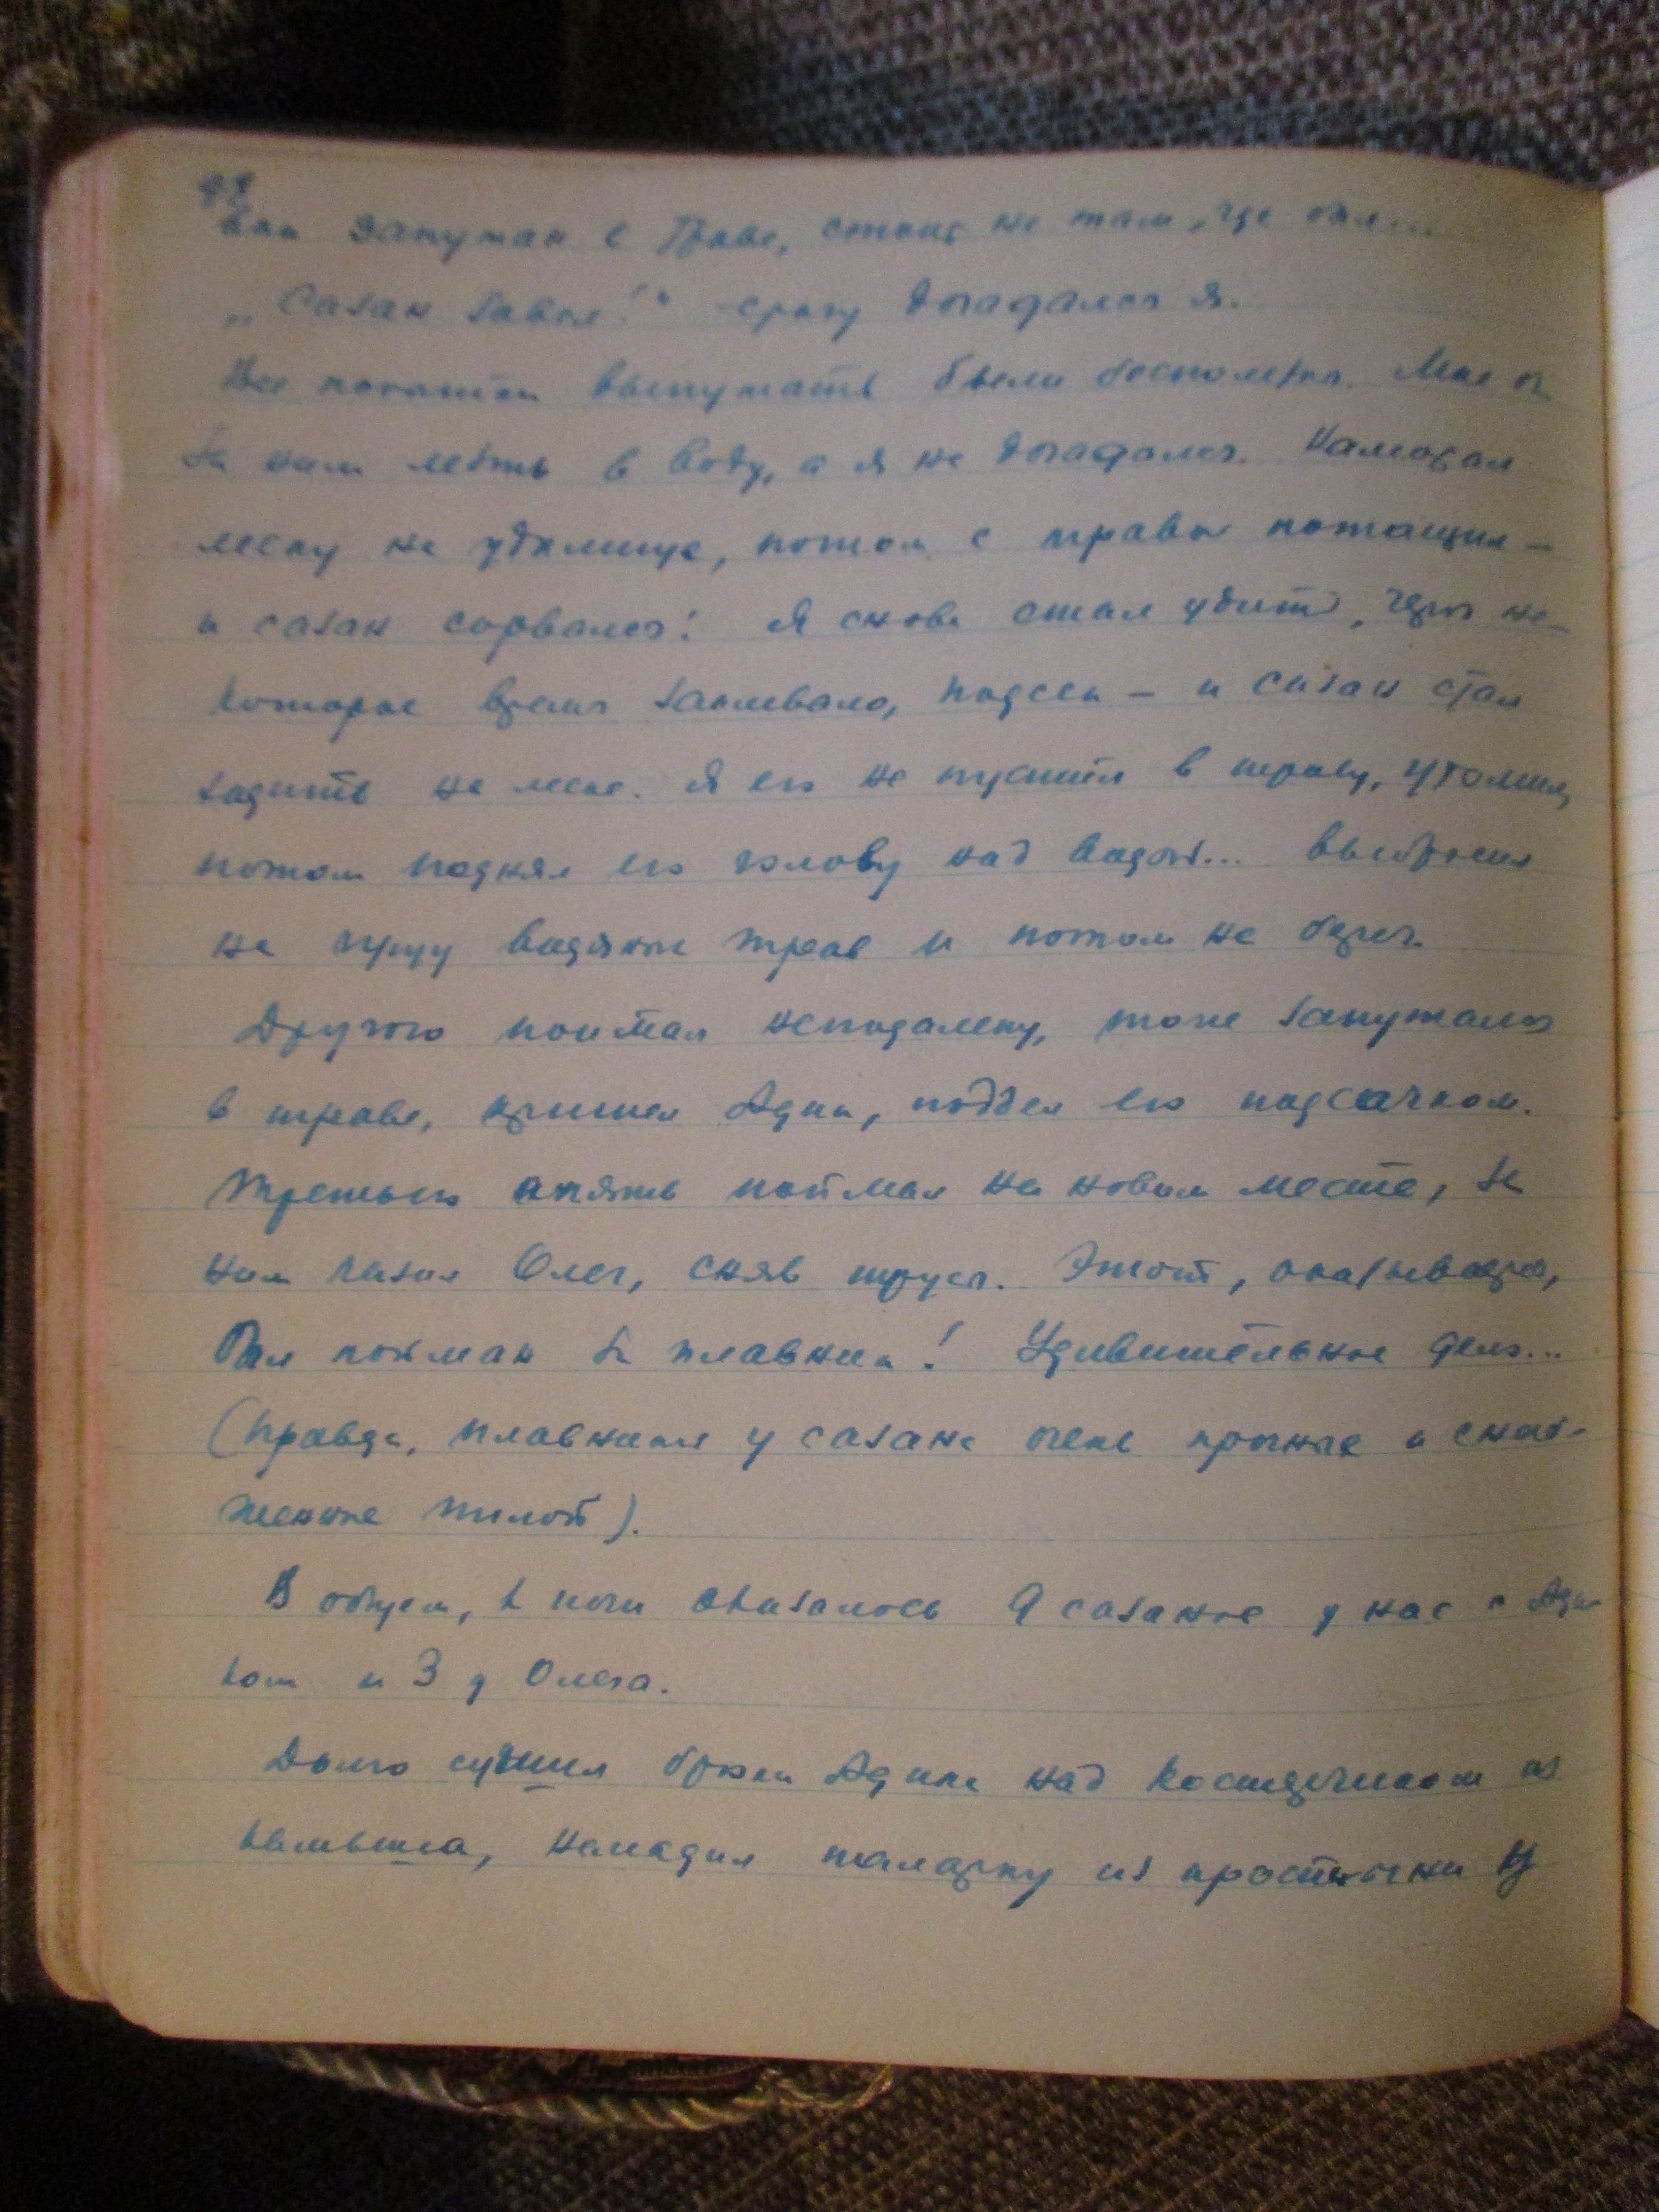 98
запутан в траве, стоит не там, где был...
„Сазан завел!“ – сразу догадался я.
Все попытки выпутать были бесполезны. Мне б
за ним лезть в воду, а я не догадался. Намотал
леску на удилище, потом с травы потащил –
и сазан сорвался! Я снова стал удить, через не-
которое время заклевало, подсек – и сазан стал
ходить на леске. Я его не пустил в траву, утомил,
потом поднял его голову над водой... выбросил
на кучу водяных трав и потом на берег.
Другого поймал неподалеку, тоже запутался
в траве, пришел Адик, поддел его подсачком.
Третьего опять поймал на новом месте, за
ним лазил Олег, сняв трусы. Этот, оказывается,
был пойман за плавник! Удивительное дело...
(Правда, плавники у сазана очень прочные и снаб-
женные пилой).
В общем, к ночи оказалось 9 сазанов у нас с Ади-
ком и 3 у Олега.
Долго сушил брюки Адика над костерчиком из
камыша, наладил палатку из простыни и